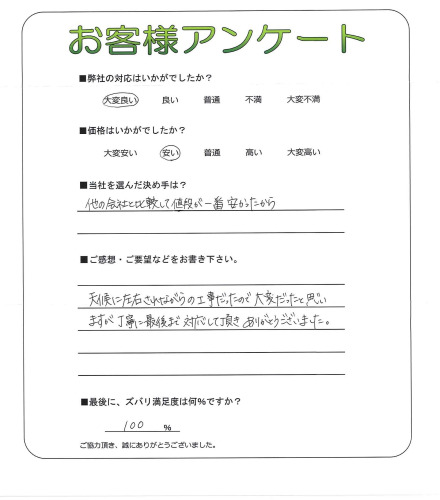 お客様アンケート
■弊社の対応はいかがでしたか？
大変良い 良い 普通 不満 大変不満
■価格はいかがでしたか？
大変安い 安い 普通 高い 大変高い
■当社を選んだ決め手は？
他の会社と比較して値段が一番安かったから
■ご感想・ご要望などをお書き下さい。
天候に左右されながらの工事だったので大変だったと思い
ますが丁寧に最後まで対応して頂きありがとうございました。
■最後に、ズバリ満足度は何％ですか？
100 ％
ご協力頂き、誠にありがとうございました。